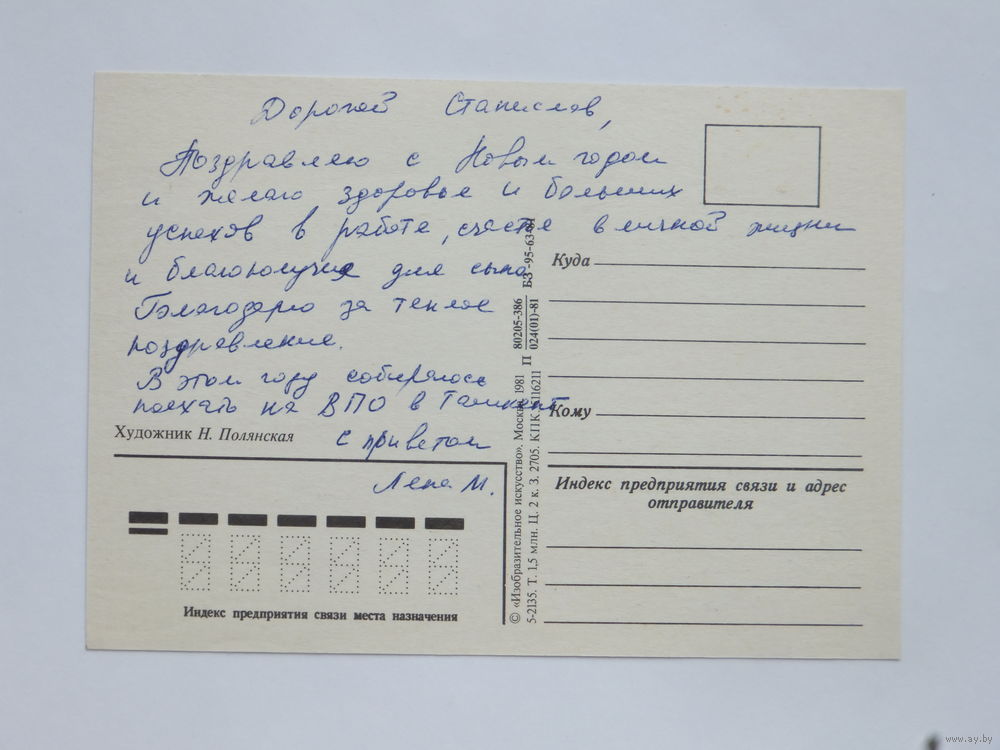 Дорогой Станислав,
Поздравляю с Новым годом
и желаю здоровья и больших
успехов в работе, счастья в личной жизни
и благополучия для сына
Благодарю за теплое
поздравление.
В этом году собираюсь
поехать на ВПО в Ташкент.
с приветом
Лена М.
Художник Н. Полянская
Индекс предприятия связи места назначения
© «Изобразительное искусство». Москва. 1981
5-2135. Т. 1,5 млн. Ц. 2 к. З. 2705. КПК
П 80205-386
024(01)-81
БЗ-95-63-81
Куда
Кому
Индекс предприятия связи и адрес
отправителя
www.ay.by